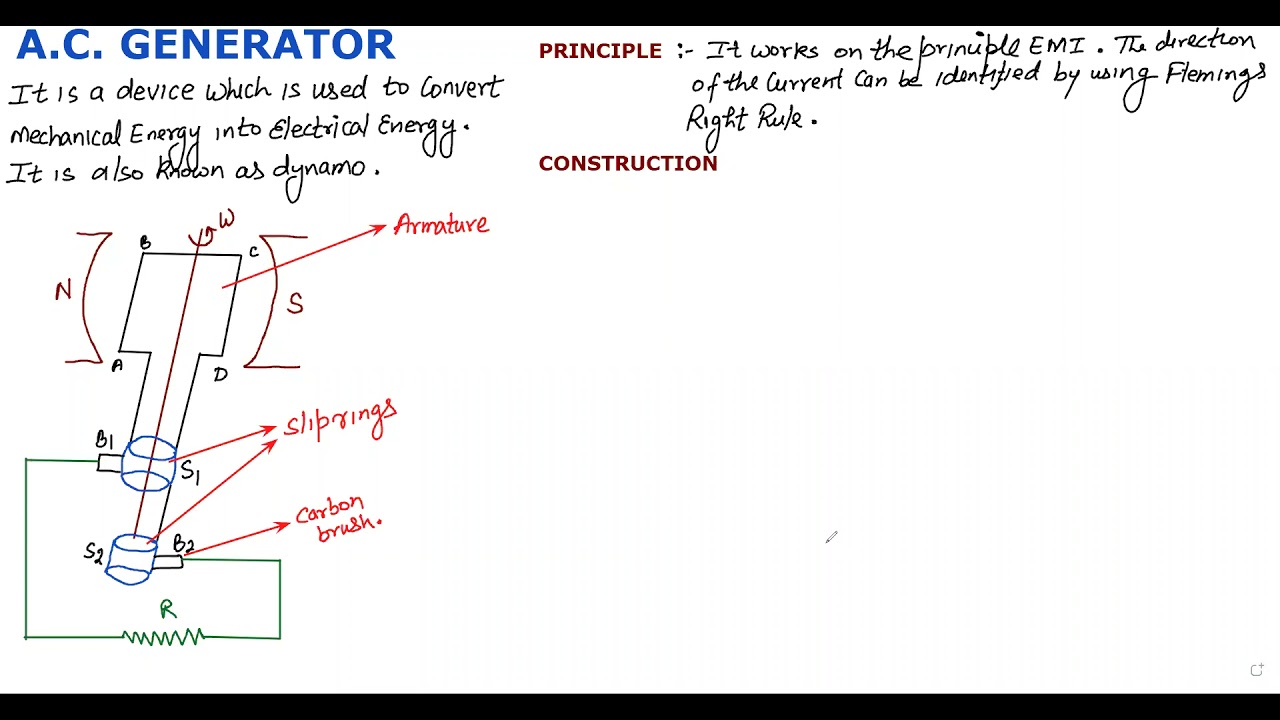 A.C. GENERATOR
It is a device which is used to convert
Mechanical Energy into Electrical Energy.
It is also known as dynamo.
PRINCIPLE :- It works on the principle EMI. The direction
of the current can be identified by using Flemings
Right Rule.
CONSTRUCTION
W
Armature
B
C
N
S
A
D
Sliprings
B1
S1
Carbon
brush.
S2
B2
R